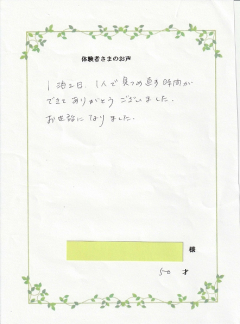 体験者さまのお声
1泊2日、1人で見つめ直す時間が
できてありがとうございました。
お世話になりました。
様
50 才